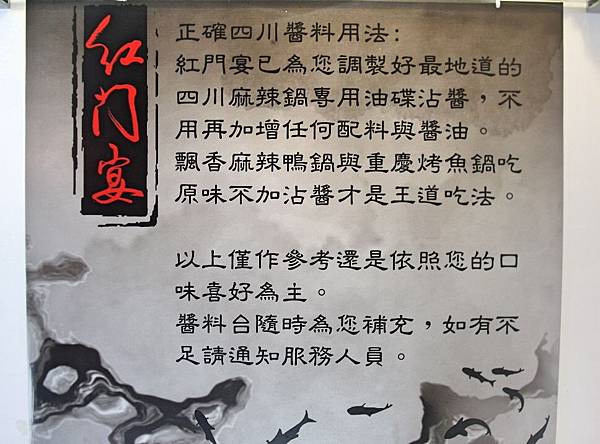 红门宴
正確四川醬料用法:
紅門宴已為您調製好最地道的
四川麻辣鍋專用油碟沾醬，不
用再加增任何配料與醬油。
飄香麻辣鴨鍋與重慶烤魚鍋吃
原味不加沾醬才是王道吃法。
以上僅作參考還是依照您的口
味喜好為主。
醬料台隨時為您補充，如有不
足請通知服務人員。